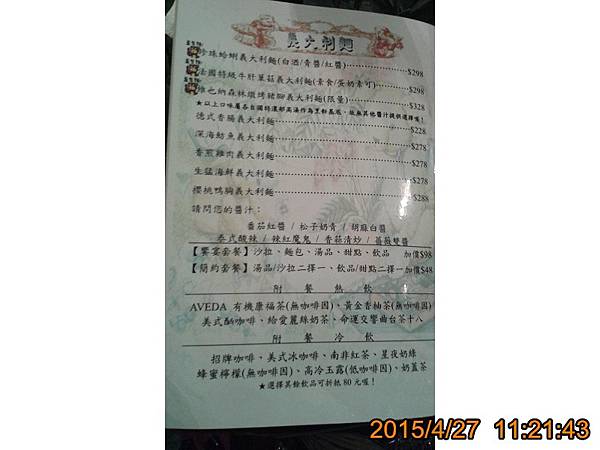 義大利麵
珍珠蛤蜊義大利麵(白酒/青醬/紅醬)………………$298
法國特級牛肝蕈菇義大利麵(素食/蛋奶素可)………$298
維也納森林燉烤豬腳義大利麵(限量)………………$328
★以上口味屬各自國特濃郁高湯作為烹飪基底，故無其他醬汁提供選擇喔！
德式香腸義大利麵………………$228
深海鮭魚義大利麵………………$278
香煎雞肉義大利麵………………$278
生猛海鮮義大利麵………………$278
櫻桃鴨胸義大利麵………………$288
請問您的醬汁：
番茄紅醬 / 松子奶青 / 胡麻白醬
泰式酸辣 / 辣紅魔鬼 / 香蒜清炒 / 薔薇雙醬
【饗宴套餐】沙拉、麵包、湯品、甜點、飲品 加價$98
【簡約套餐】湯品/沙拉二擇一、飲品/甜點二擇一 加價$48
附 餐 熱 飲
AVEDA 有機康福茶(無咖啡因)、黃金香柚茶(無咖啡因)
美式酗咖啡、給愛麗絲奶茶、命運交響曲台茶十八
附 餐 冷 飲
招牌咖啡、美式冰咖啡、南非紅茶、星夜奶綠
蜂蜜檸檬(無咖啡因)、高冷玉露(低咖啡因)、奶蓋茶
★選擇其餘飲品可折抵 80 元喔！
2015/4/27 11:21:43